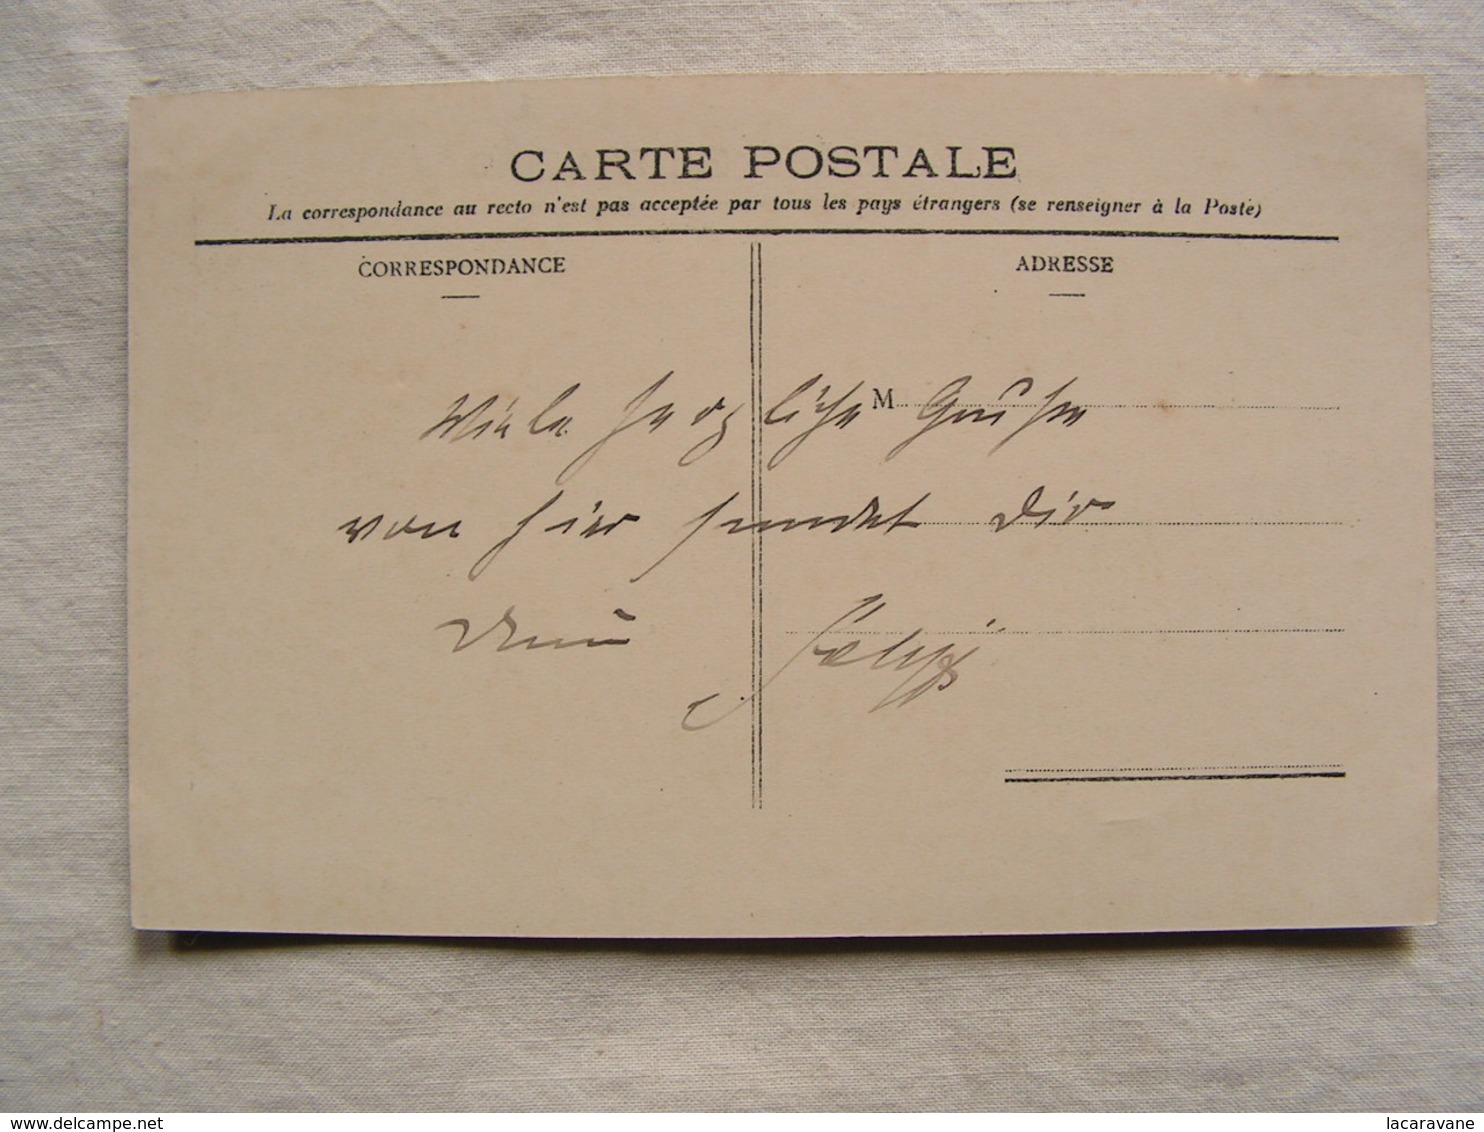 CARTE POSTALE
La correspondance au recto n'est pas acceptée par tous les pays étrangers (se renseigner à la Poste)
CORRESPONDANCE
ADRESSE
M
Viele herzliche Grüße
von hier sendet Dir
Dein
www.delcampe.net
lacaravane